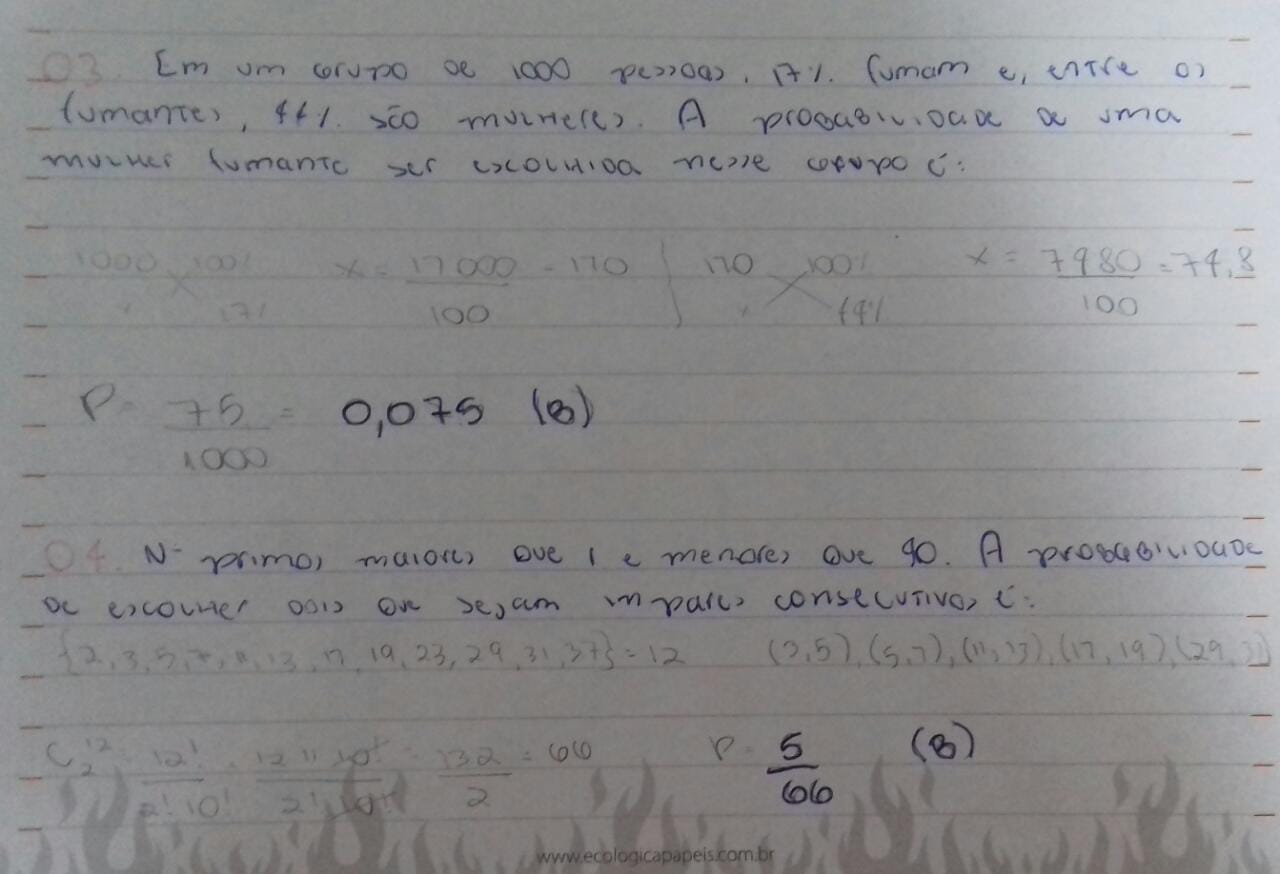 03. Em um grupo de 1000 pessoas, 17% fumam e, entre os
fumantes, 44% são mulheres. A probabilidade de uma
mulher fumante ser escolhida nesse grupo é:
1000 100% x = 17000 = 170 170 100% x = 7480 = 74,8
17% 100 44% 100
P = 75 = 0,075 (B)
1000
04. Nº primos maiores que 1 e menores que 40. A probabilidade
de escolher dois que sejam ímpares consecutivos é:
{2,3,5,7,11,13,17,19,23,29,31,37} = 12 (3,5),(5,7),(11,13),(17,19),(29,31)
C₂¹² = 12! = 12 11 10! = 132 = 66 P = 5 (B)
2! 10! 2! 10! 2 66
www.ecologicapapeis.com.br